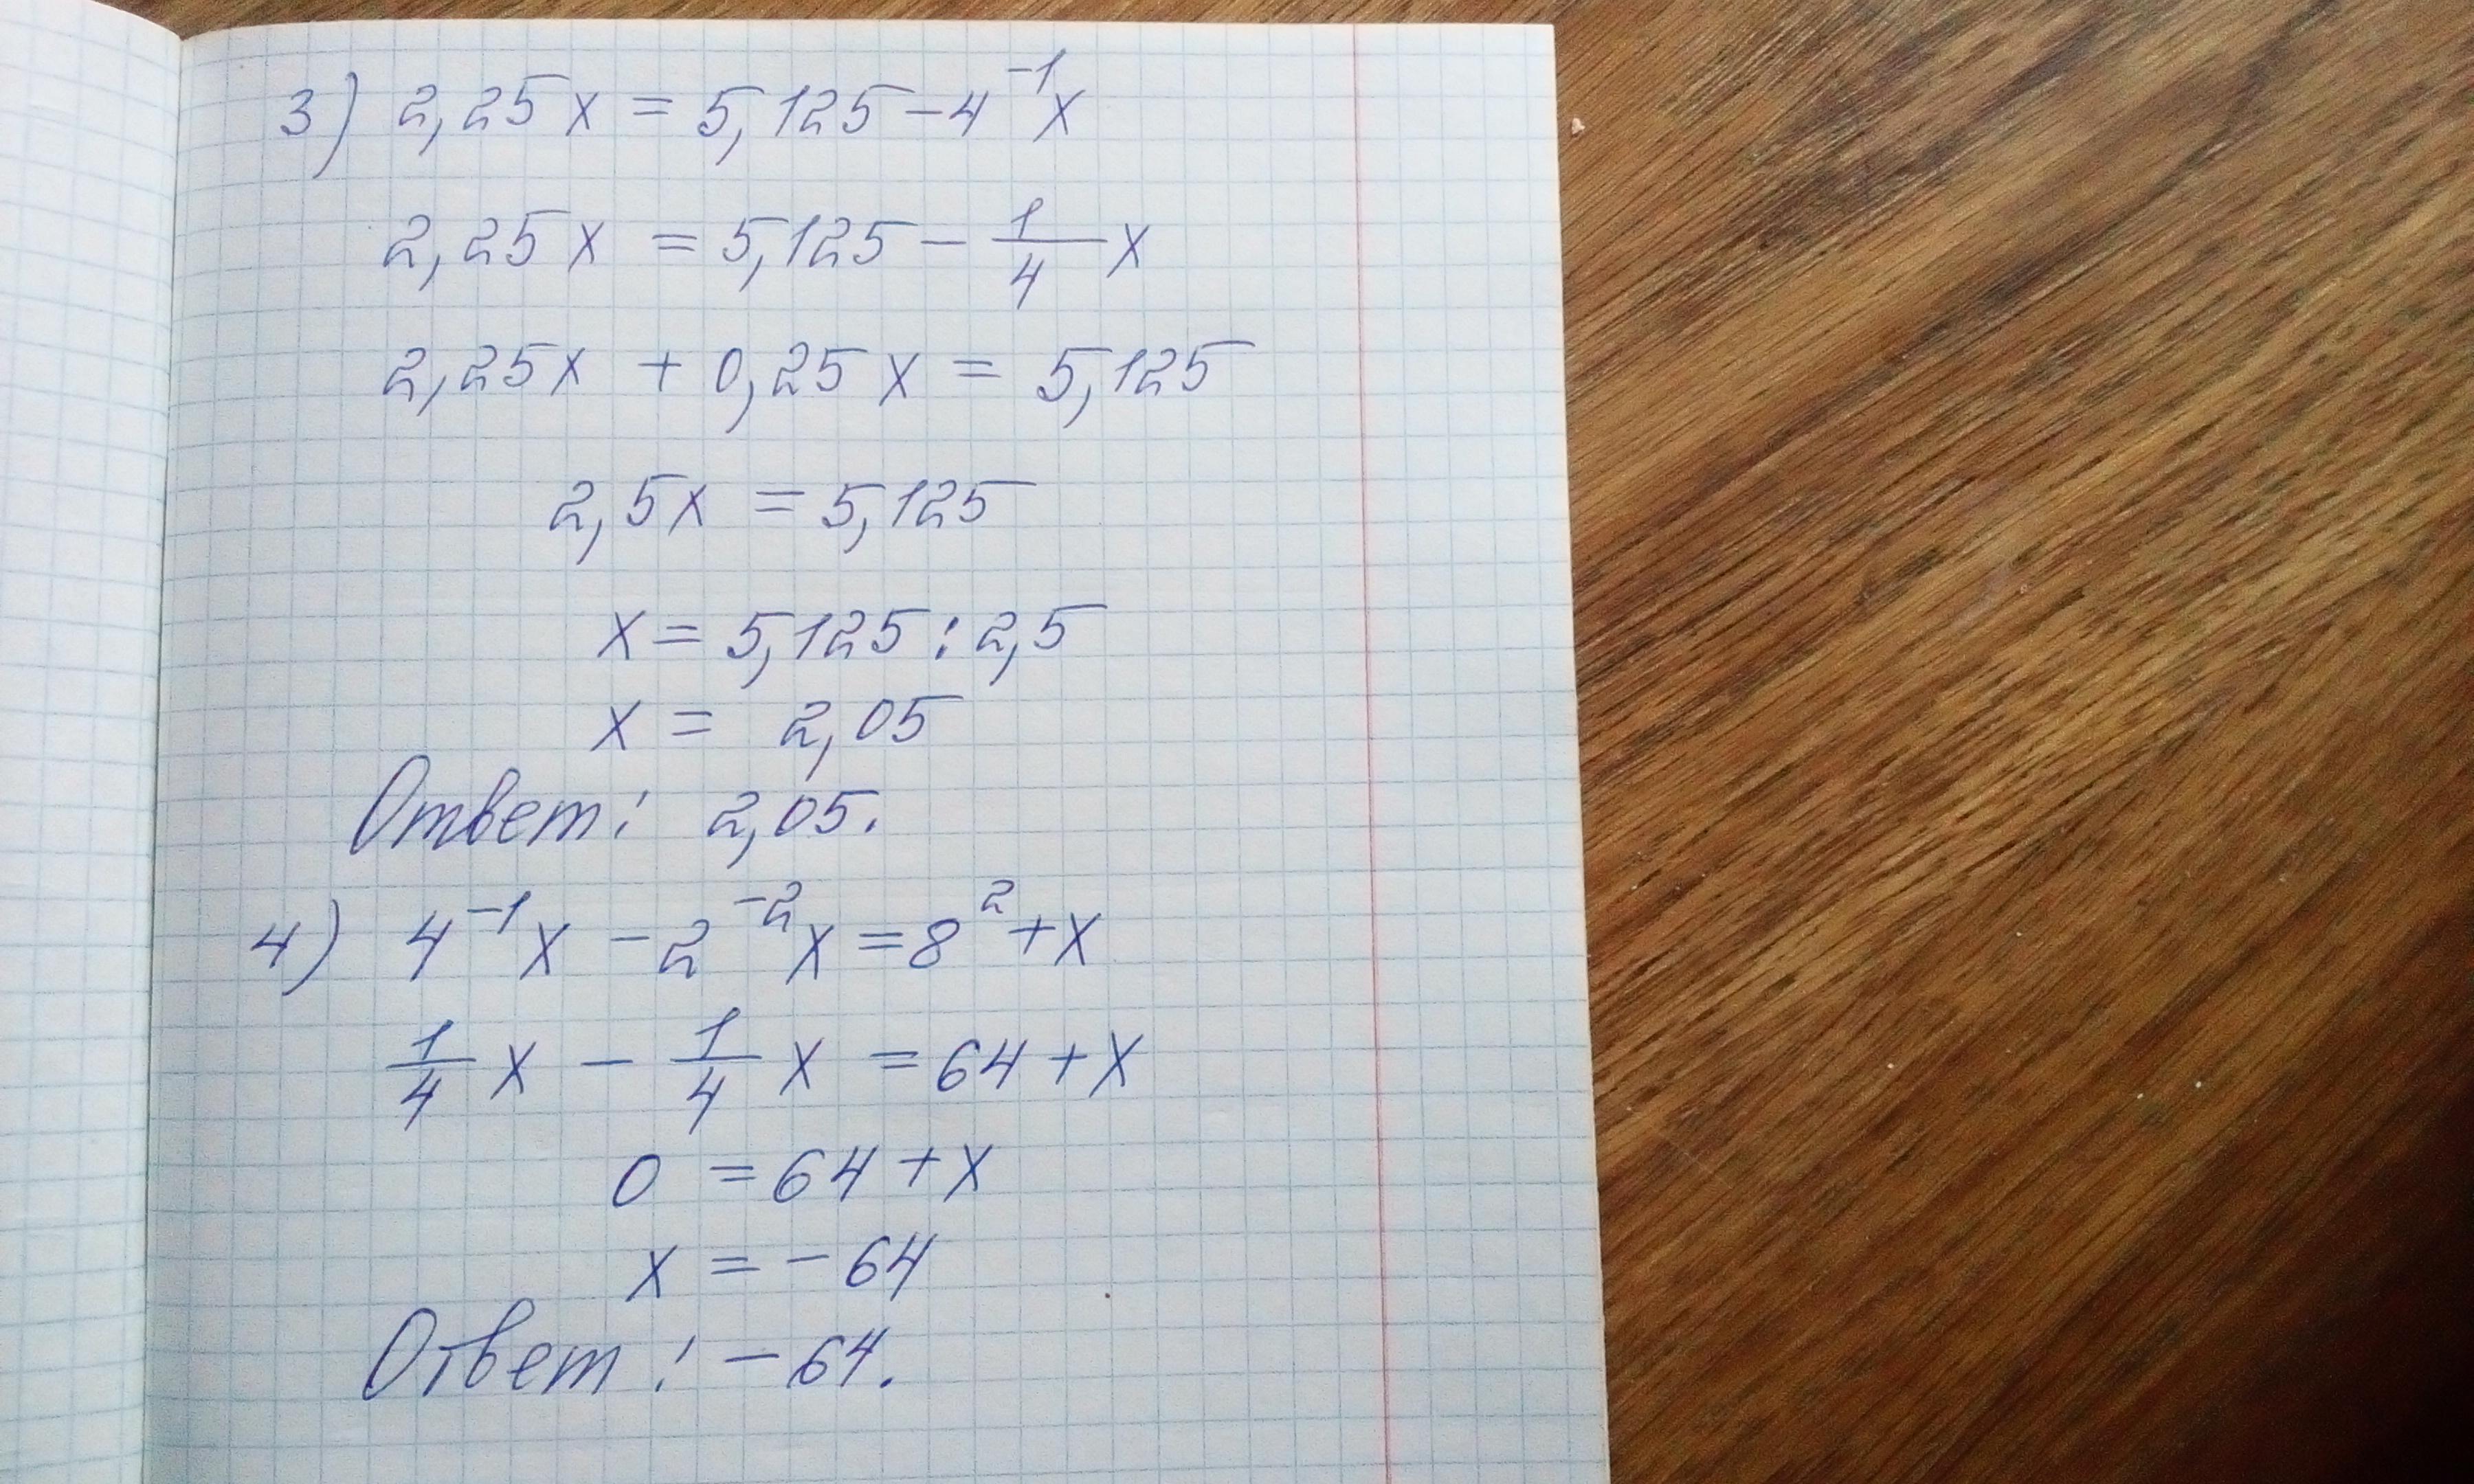 3) 2,25x = 5,125 - 4⁻¹x
2,25x = 5,125 - 1/4 x
2,25x + 0,25x = 5,125
2,5x = 5,125
x = 5,125 : 2,5
x = 2,05
Ответ: 2,05.
4) 4⁻¹x - 2⁻²x = 8² + x
1/4 x - 1/4 x = 64 + x
0 = 64 + x
x = -64
Ответ: -64.